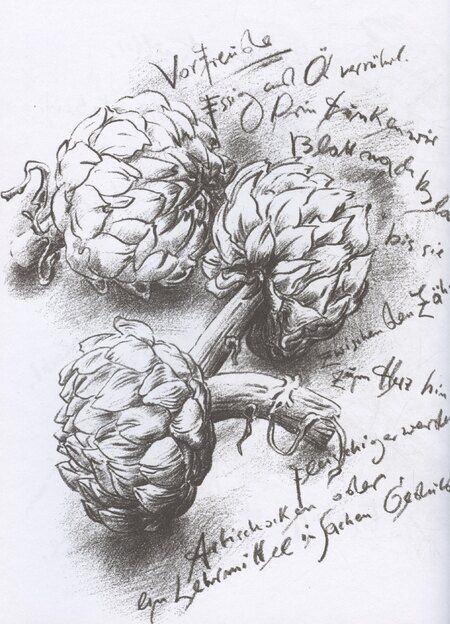 Vorfreude
Essig und Öl verrührt.
Drin tunken wir
Blatt nach Bla
bis sie
zwischen den Zäh
zum Herz hin
fleischiger werde
Artischocken oder
ein Lehrmittel in Sachen Geduld